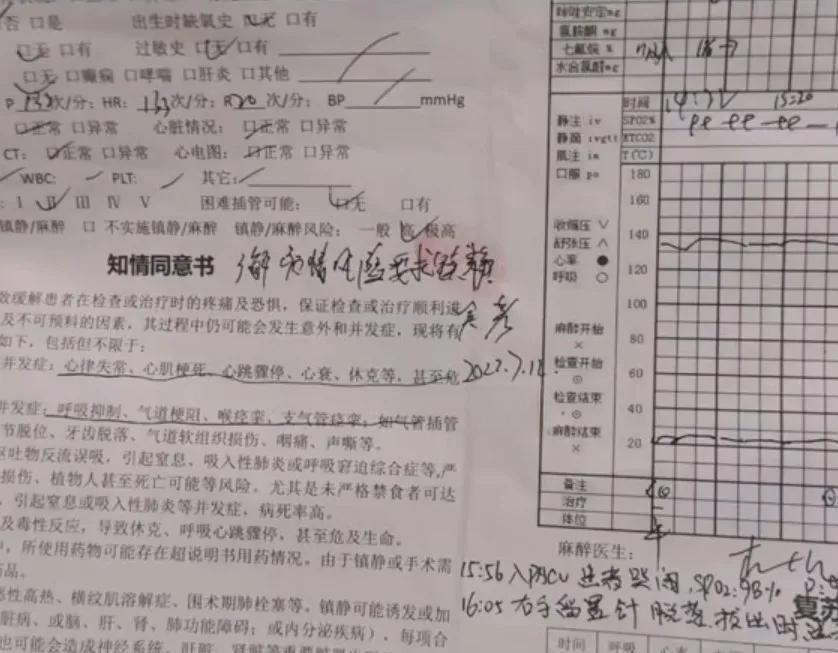 否 口是 出生时缺氧史 口无 口有
口无 口有 过敏史 口无 口有
口无 口癫痫 口哮喘 口肝炎 口其他
P 次/分; HR: 133次/分; R20次/分; BP mmHg
口正常 口异常 心脏情况: 口正常 口异常
CT: 口正常 口异常 心电图: 口正常 口异常
WBC: PLT: 其它:
: I II III IV V 困难插管可能: 口无 口有
镇静/麻醉 口 不实施镇静/麻醉 镇静/麻醉风险: 一般 高 极高
知情同意书 了解 知情 风险 要求镇静
效缓解患者在检查或治疗时的疼痛及恐惧，保证检查或治疗顺利进
及不可预料的因素，其过程中仍可能会发生意外和并发症，现将有
如下，包括但不限于:
并发症: 心律失常、心肌梗死、心跳骤停、心衰、休克等，甚至危
2022.7.18.
并发症: 呼吸抑制、气道梗阻、喉痉挛、支气管痉挛; 如气管插管
节脱位、牙齿脱落、气道软组织损伤、咽痛、声嘶等。
呕吐物反流误吸，引起窒息、吸入性肺炎或呼吸窘迫综合症等，严
损伤、植物人甚至死亡可能等风险。尤其是未严格禁食者可达
，引起窒息或吸入性肺炎等并发症，病死率高。
及毒性反应，导致休克、呼吸心跳骤停，甚至危及生命。
中，所使用药物可能存在超说明书用药情况。由于镇静或手术需
药品。
恶性高热、横纹肌溶解症、围术期肺栓塞等。镇静可能诱发或加
脏病、或脑、肝、肾、肺功能障碍; 或内分泌疾病），每项合
也可能会造成神经系统、肝脏、肾脏等重要
咪唑安定mg
氯胺酮 mg
七氟烷 %
水合氯醛mg
时间 15:20
静注 iv SPO2%
静滴 ivgtt ETCO2
肌注 im T(℃)
口服 po 180
160
收缩压 ∨
舒张压 ∧ 140
心率 ●
呼吸 ○ 120
100
麻醉开始
× 80
检查开始
⊙ 60
检查结束
⊙ 40
麻醉结束
× 20
备注
治疗
体位
麻醉医生:
15:56 入PACU 患者哭闹, SPO2:98%
16:05 右手留置针脱落, 拔出时
时间 呼吸 心率